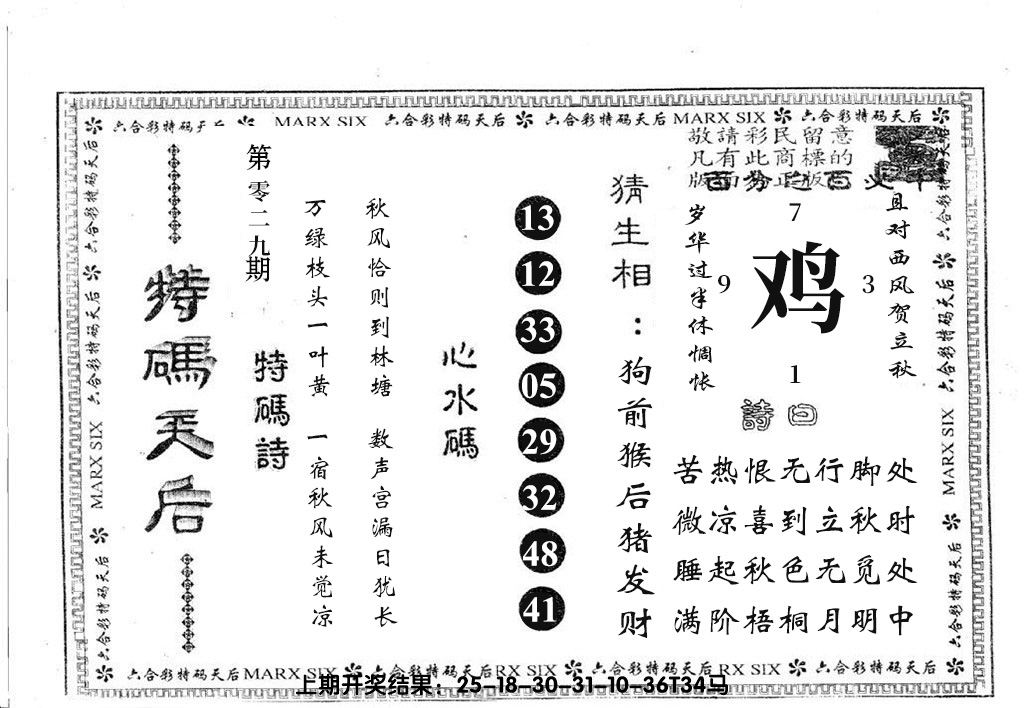 六合彩特码天后 MARX SIX 六合彩特码天后 六合彩特码天后 MARX SIX 六合彩特码天后
敬請彩民留意
凡有此商標的
版面為正版
特碼天后
第零二九期
特碼詩
万绿枝头一叶黄 一宿秋风未觉凉
秋风恰则到林塘 数声宫漏日犹长
心水碼
13
12
33
05
29
32
48
41
猜生相：狗前猴后猪发财
岁华过半休惆怅
且对西风贺立秋
7
9 鸡 3
1
詩曰
苦热恨无行脚处
微凉喜到立秋时
睡起秋色无觅处
满阶梧桐月明中
六合彩特码天后 MARX SIX 六合彩特码天后
六合彩特码天后 MARX SIX 六合彩特码天后
六合彩特码天后 MARX SIX 六合彩特码天后 六合彩特码天后 RX SIX 六合彩特码天后
上期开奖结果：25-18-30-31-10-36T34马